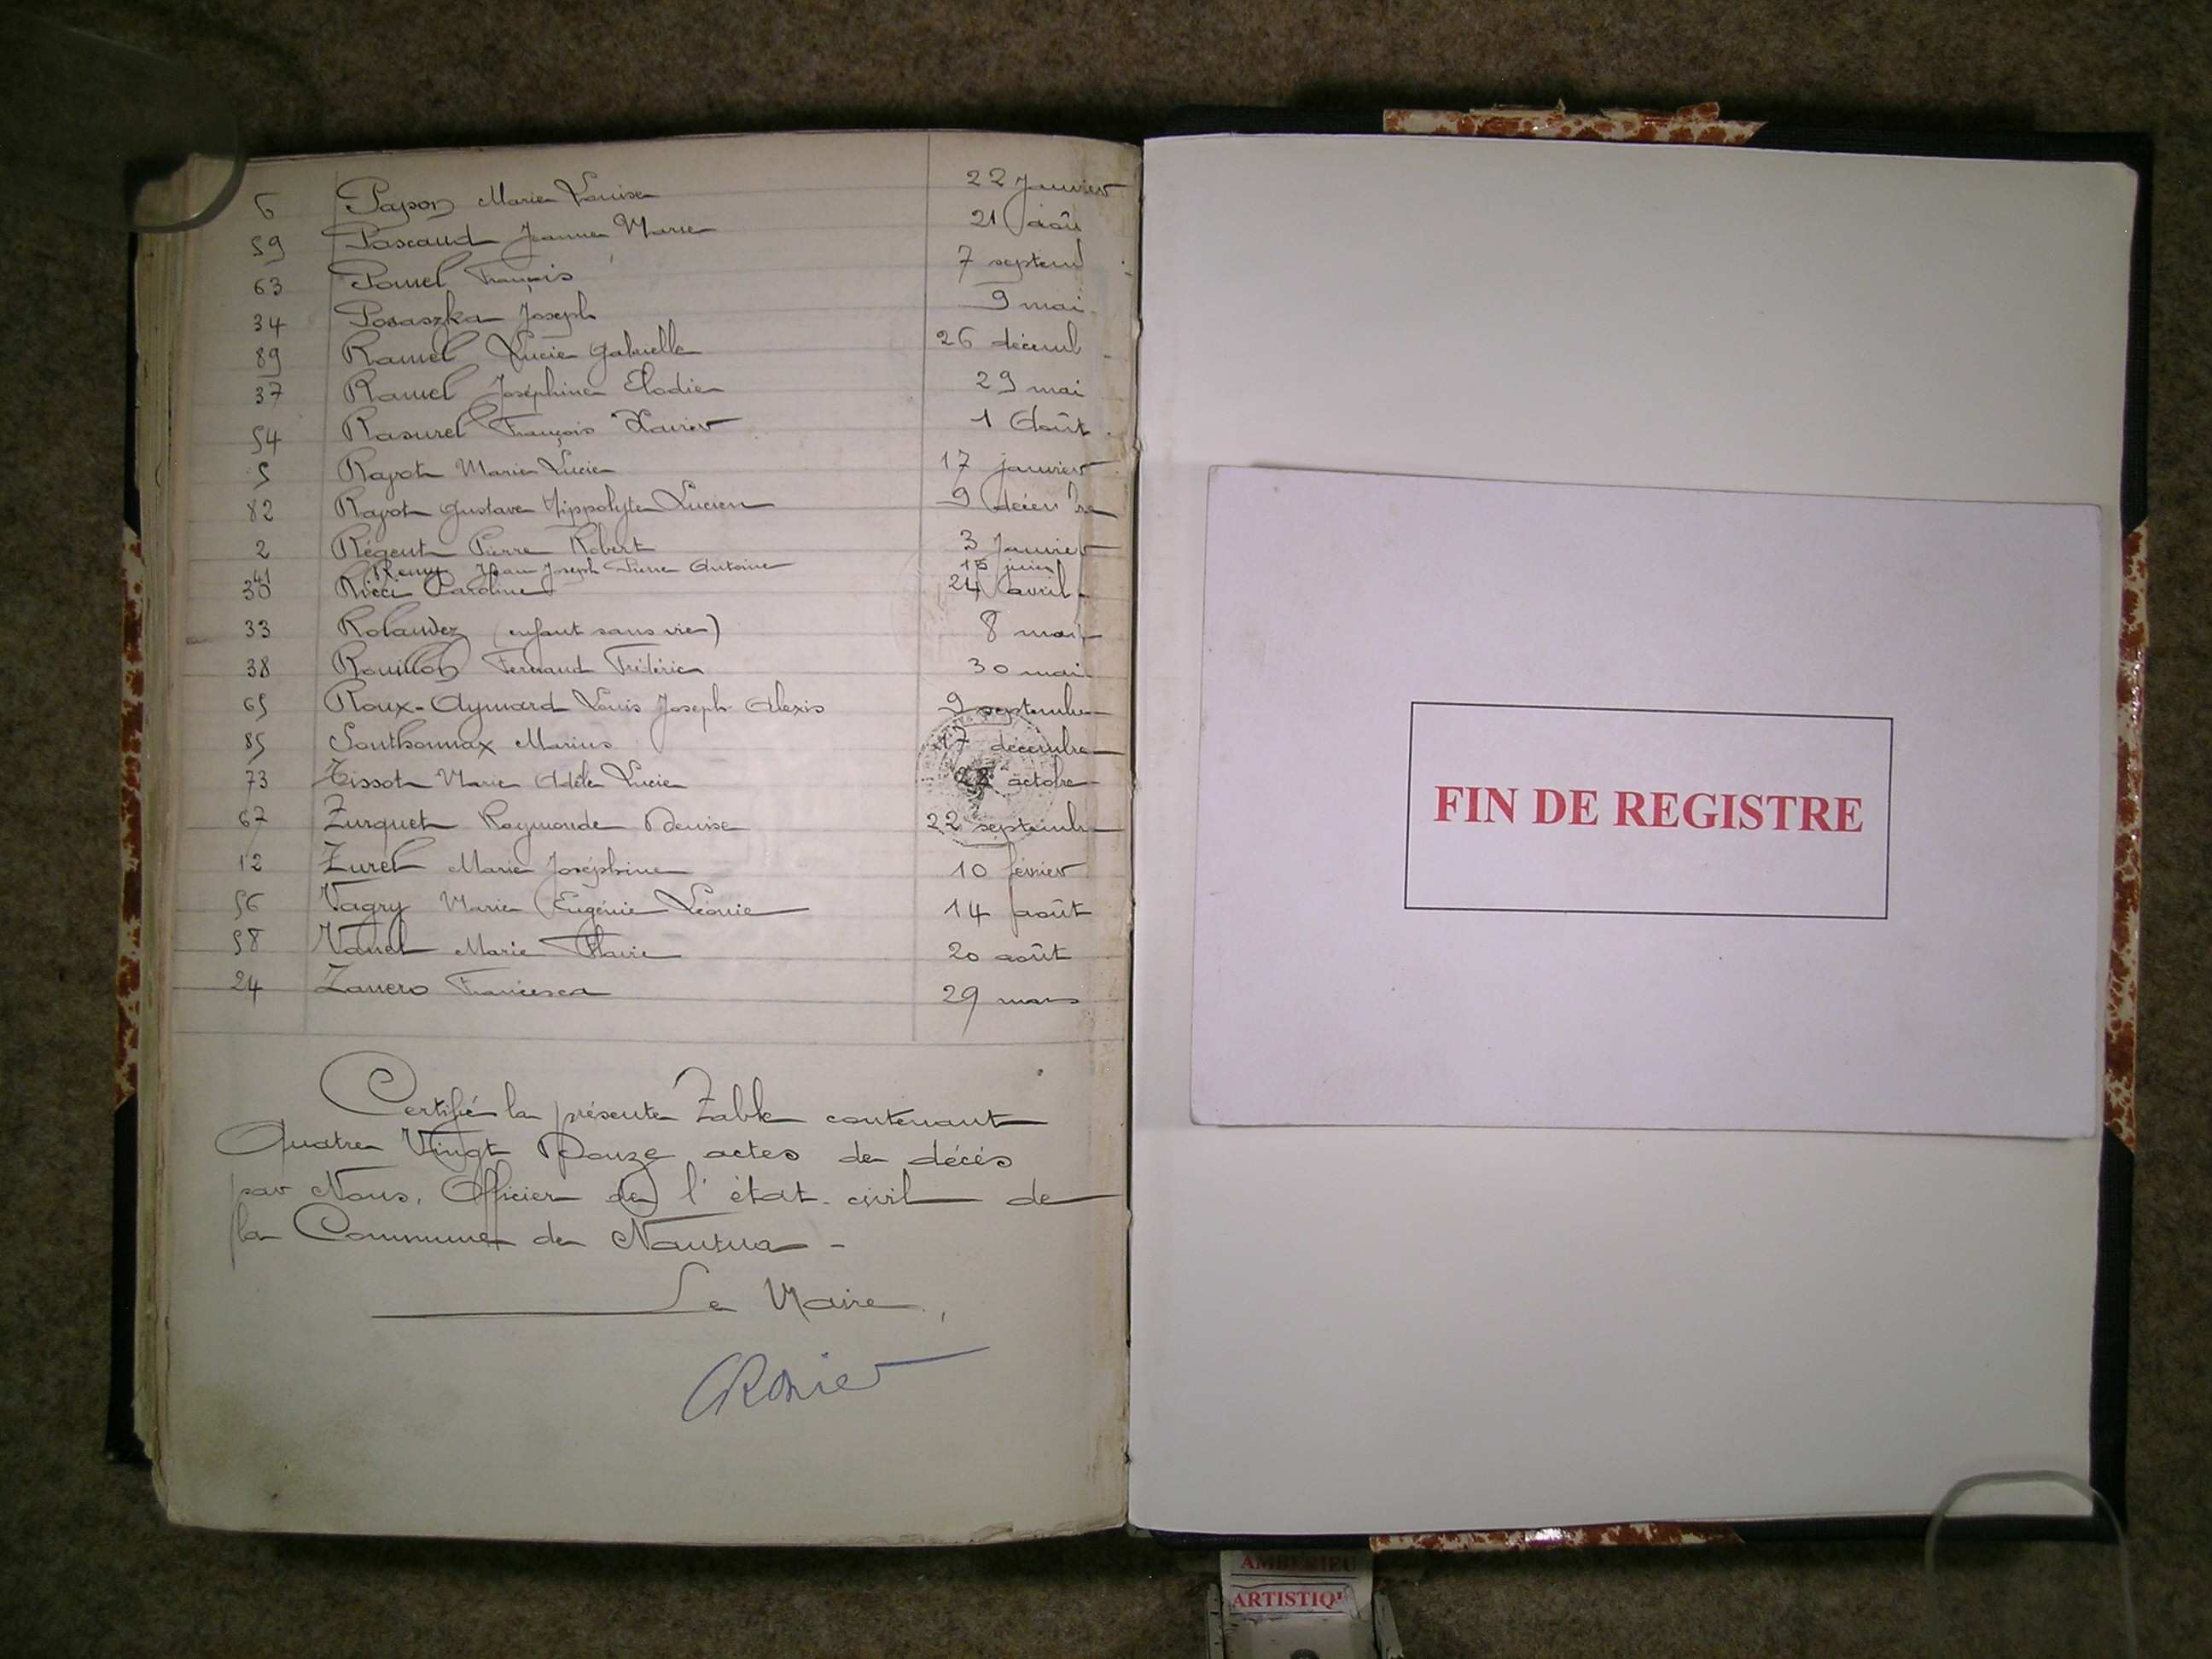 6 Papon Marie Louise 22 Janvier
59 Pascaud Jeanne Marie 21 aoû
63 Pomel François 7 septem
34 Posaszka Joseph 9 mai
89 Ramel Lucie Gabrielle 26 décemb
37 Ramel Joséphine Elodie 29 mai
54 Rasurel François Xavier 1 Août
5 Rayot Marie Lucie 17 janvier
82 Rayot Gustave Hippolyte Lucien 9 décembre
2 Régent Pierre Robert 3 Janvier
41 Remy Jean Joseph Pierre Antoine 15 juin
30 Ricci Caroline 24 avril
33 Rolandez (enfant sans vie) 8 mai
38 Rouillon Fernand Frédéric 30 mai
65 Roux-Aymard Louis Joseph Alexis 9 septembre
85 Sonthonnax Marius 17 décembre
73 Tissot Marie Adèle Lucie octobre
67 Turquet Raymonde Denise 22 septembre
12 Turel Marie Joséphine 10 février
56 Vagry Marie Eugénie Léonie 14 août
58 Vanel Marie Flavie 20 août
24 Zanero Francesca 29 mars
Certifié la présente Table contenant
Quatre Vingt Douze actes de décès
par Nous, Officier de l'état-civil de
la Commune de Nantua -
Le Maire,
FIN DE REGISTRE
AMBERIEU
ARTISTIQU